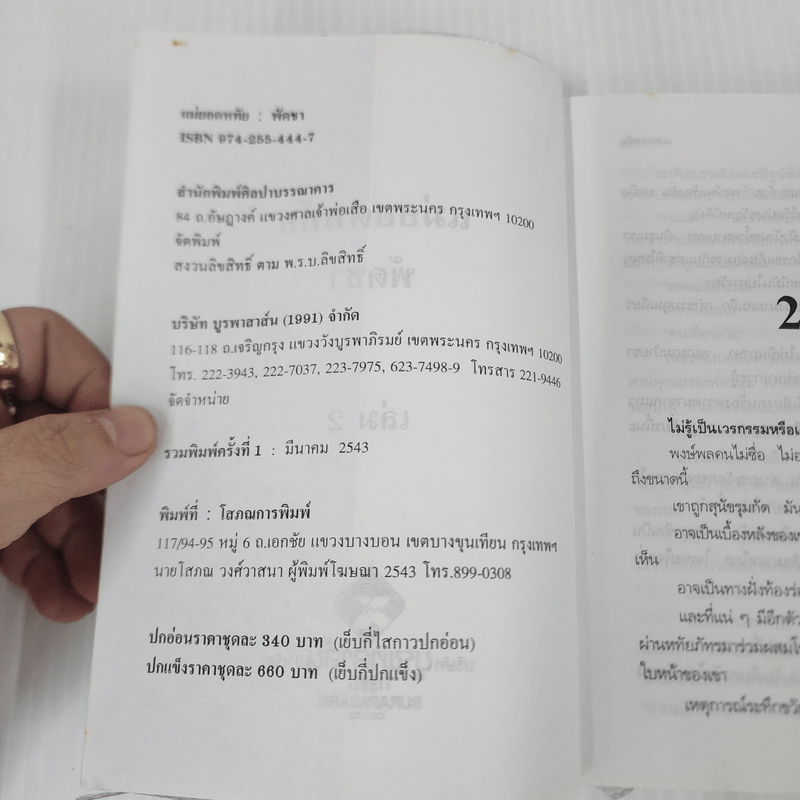 แม่ยอดหทัย : พัดชา
ISBN 974-255-444-7
สำนักพิมพ์ศิลปาบรรณาคาร
84 ถ.อัษฎางค์ แขวงศาลเจ้าพ่อเสือ เขตพระนคร กรุงเทพฯ 10200
จัดพิมพ์
สงวนลิขสิทธิ์ ตาม พ.ร.บ.ลิขสิทธิ์
บริษัท บูรพาสาส์น (1991) จำกัด
116-118 ถ.เจริญกรุง แขวงวังบูรพาภิรมย์ เขตพระนคร กรุงเทพฯ 10200
โทร. 222-3943, 222-7037, 223-7975, 623-7498-9 โทรสาร 221-9446
จัดจำหน่าย
รวมพิมพ์ครั้งที่ 1 : มีนาคม 2543
พิมพ์ที่ : โสภณการพิมพ์
117/94-95 หมู่ 6 ถ.เอกชัย แขวงบางบอน เขตบางขุนเทียน กรุงเทพฯ
นายโสภณ วงศ์วาสนา ผู้พิมพ์โฆษณา 2543 โทร.899-0308
ปกอ่อนราคาชุดละ 340 บาท (เย็บกี่ไสกาวปกอ่อน)
ปกแข็งราคาชุดละ 660 บาท (เย็บกี่ปกแข็ง)
2
ไม่รู้เป็นเวรกรรมหรือ
พงษ์พลคนไม่ซื่อ
ถึงขนาดนี้
เขาถูกสุนัขรุมกัด มัน
อาจเป็นเบื้องหลังของ
เห็น
อาจเป็นทางฝั่งท้องร่อ
และที่แน่ ๆ มีอีกตัว
ผ่านหทัยภัทรมาร่วมผสม
ใบหน้าของเขา
เหตุการณ์ระทึกขวั